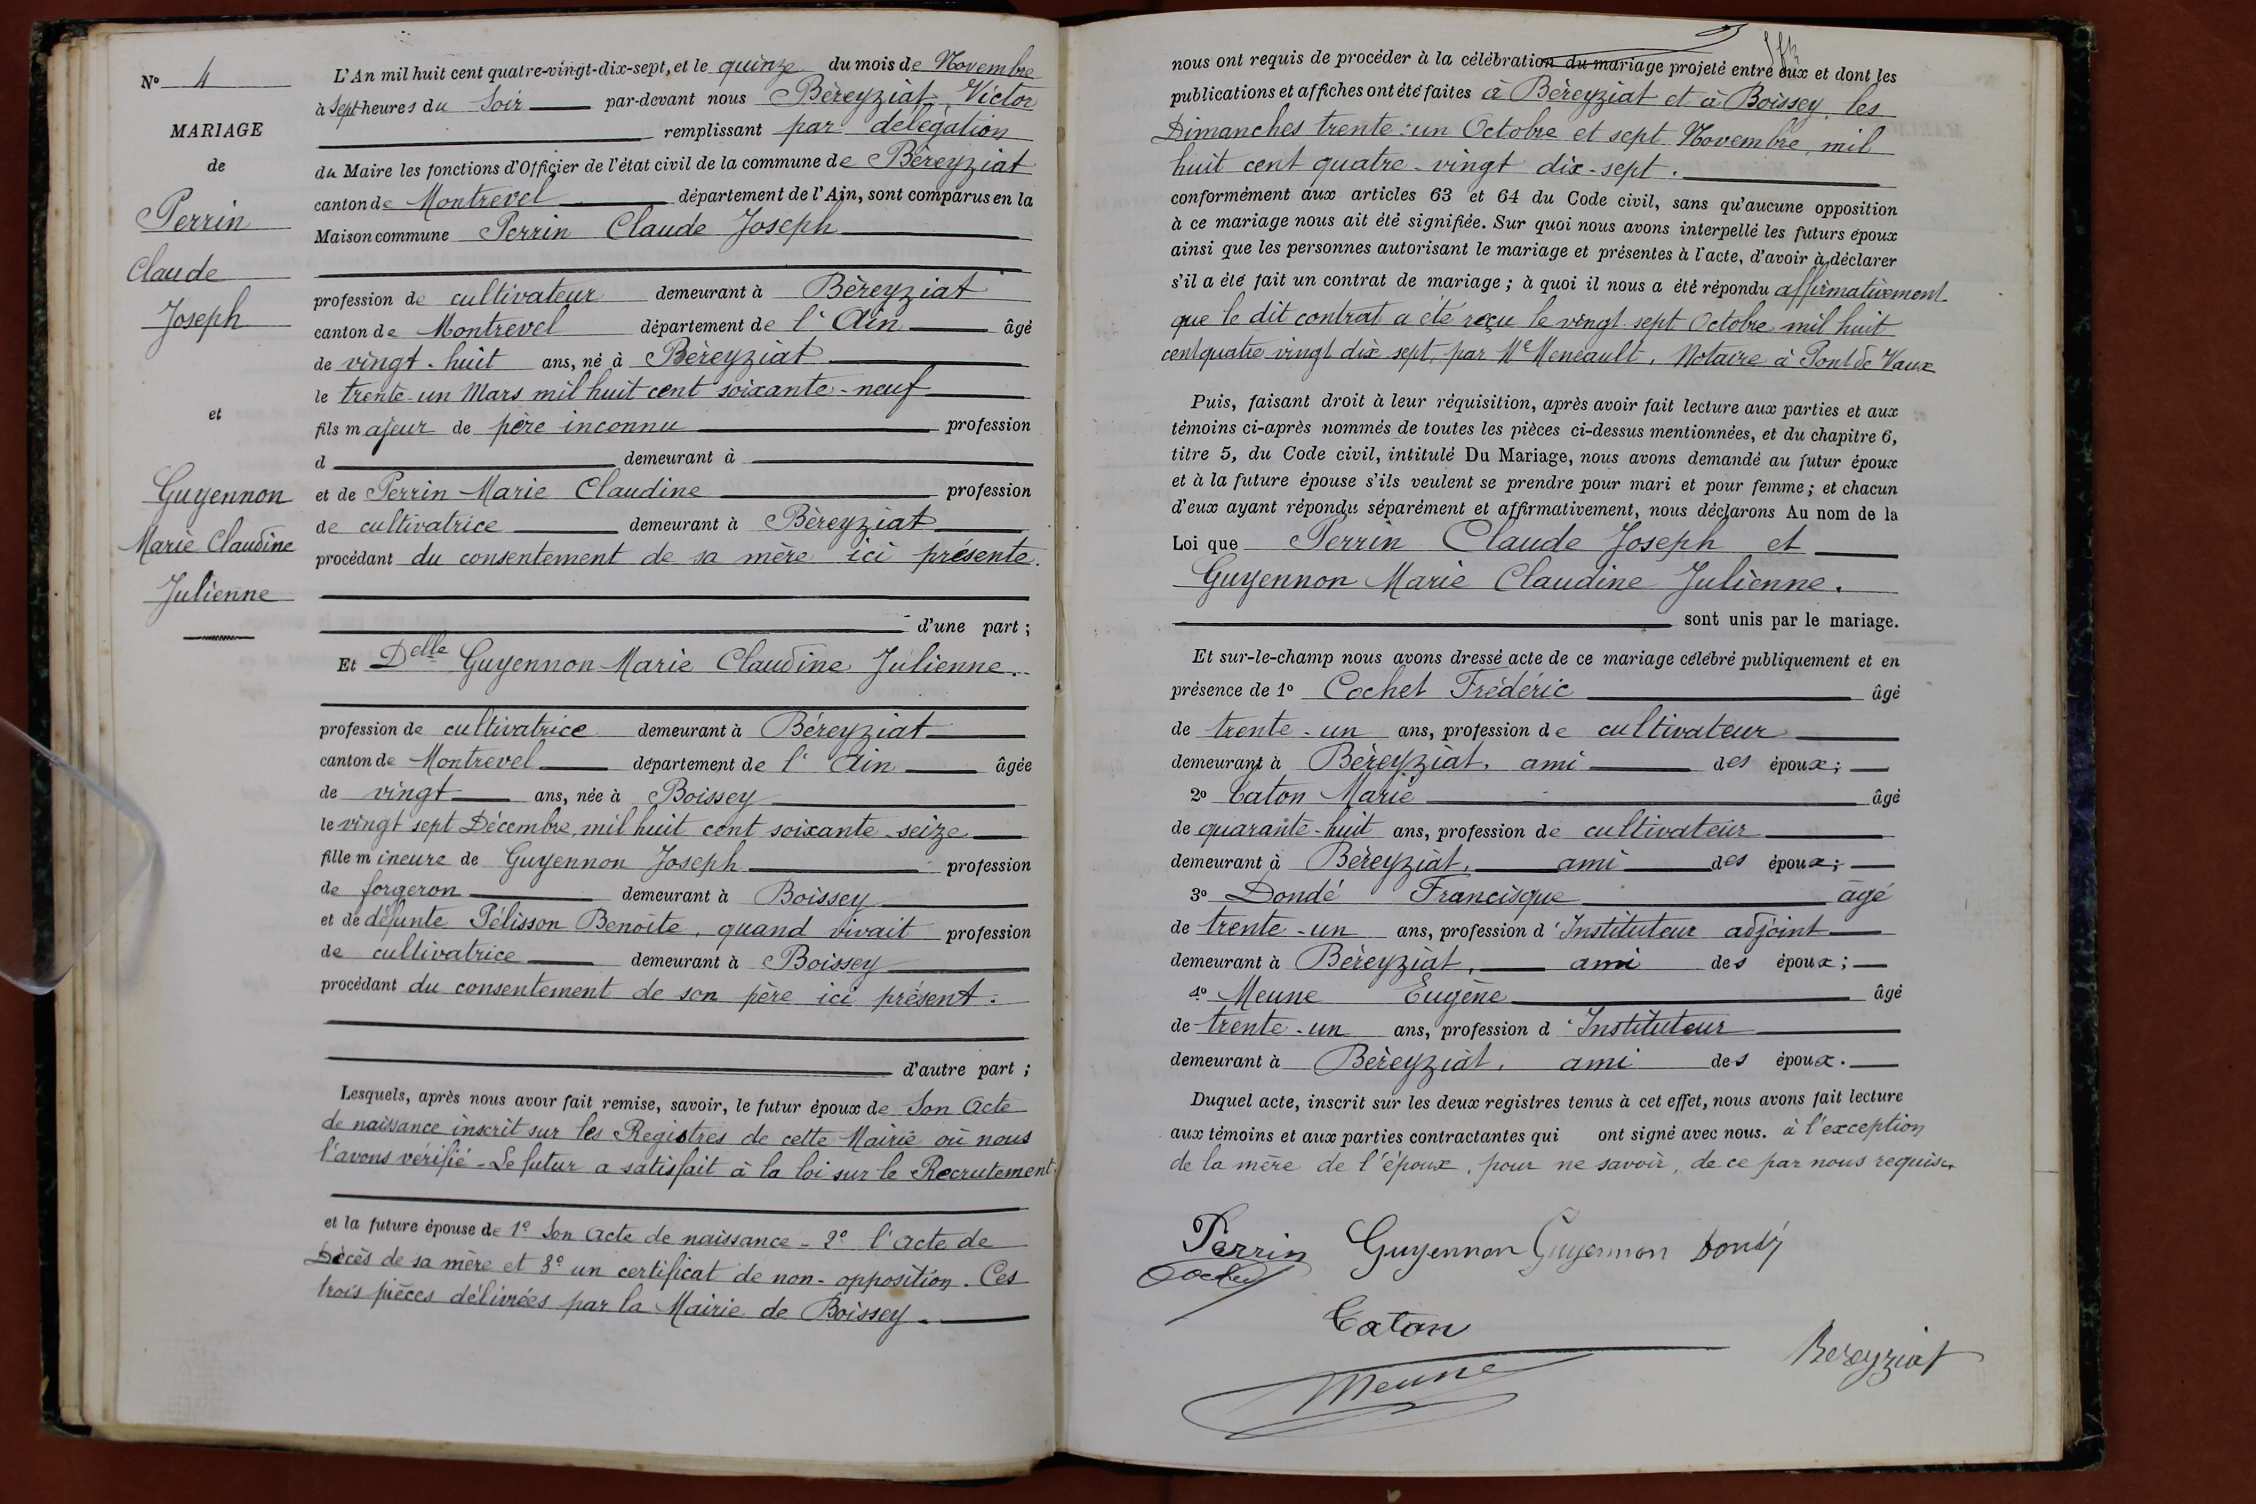 N° 4
MARIAGE
de
Perrin
Claude
Joseph
et
Guyennon
Marie Claudine
Julienne
L'An mil huit cent quatre-vingt-dix-sept, et le quinze du mois de Novembre
à sept heures du Soir par-devant nous Béreyziat, Victor
remplissant par délégation
du Maire les fonctions d'Officier de l'état civil de la commune de Béreyziat
canton de Montrevel département de l'Ain, sont comparus en la
Maison commune Perrin Claude Joseph
profession de cultivateur demeurant à Béreyziat
canton de Montrevel département de l'Ain âgé
de vingt-huit ans, né à Béreyziat
le trente-un Mars mil huit cent soixante-neuf
fils majeur de père inconnu profession
d demeurant à
et de Perrin Marie Claudine profession
de cultivatrice demeurant à Béreyziat
procédant du consentement de sa mère ici présente.
d'une part ;
Et Delle Guyennon Marie Claudine Julienne.
profession de cultivatrice demeurant à Béreyziat
canton de Montrevel département de l'Ain âgée
de vingt ans, née à Boissey
le vingt sept Décembre, mil huit cent soixante-seize
fille mineure de Guyennon Joseph profession
de forgeron demeurant à Boissey
et de défunte Pélisson Benoîte, quand vivait profession
de cultivatrice demeurant à Boissey
procédant du consentement de son père ici présent.
d'autre part ;
Lesquels, après nous avoir fait remise, savoir, le futur époux de Son Acte
de naissance inscrit sur les Registres de cette Mairie où nous
l'avons vérifié - Le futur a satisfait à la loi sur le Recrutement
et la future épouse de 1° Son acte de naissance - 2° l'acte de
Décès de sa mère et 3° un certificat de non-opposition. Ces
trois pièces délivrées par la Mairie de Boissey.
nous ont requis de procéder à la célébration du mariage projeté entre eux et dont les
publications et affiches ont été faites à Béreyziat et à Boissey, les
Dimanches trente-un Octobre et sept Novembre, mil
huit cent quatre-vingt dix-sept.
conformément aux articles 63 et 64 du Code civil, sans qu'aucune opposition
à ce mariage nous ait été signifiée. Sur quoi nous avons interpellé les futurs époux
ainsi que les personnes autorisant le mariage et présentes à l'acte, d'avoir à déclarer
s'il a été fait un contrat de mariage ; à quoi il nous a été répondu affirmativement
que le dit contrat a été reçu le vingt-sept Octobre mil huit
cent quatre vingt dix sept, par Me Meneault, Notaire à Pont de Vaux
Puis, faisant droit à leur réquisition, après avoir fait lecture aux parties et aux
témoins ci-après nommés de toutes les pièces ci-dessus mentionnées, et du chapitre 6,
titre 5, du Code civil, intitulé Du Mariage, nous avons demandé au futur époux
et à la future épouse s'ils veulent se prendre pour mari et pour femme ; et chacun
d'eux ayant répondu séparément et affirmativement, nous déclarons Au nom de la
Loi que Perrin Claude Joseph et
Guyennon Marie Claudine Julienne.
sont unis par le mariage.
Et sur-le-champ nous avons dressé acte de ce mariage célébré publiquement et en
présence de 1° Cochet Frédéric âgé
de trente-un ans, profession de cultivateur
demeurant à Béreyziat, ami des époux ;
2° Caton Marie âgé
de quarante-huit ans, profession de cultivateur
demeurant à Béreyziat, ami des époux ;
3° Dondé Francisque âgé
de trente-un ans, profession d'Instituteur adjoint
demeurant à Béreyziat, ami des époux ;
4° Meune Eugène âgé
de trente-un ans, profession d'Instituteur
demeurant à Béreyziat, ami des époux.
Duquel acte, inscrit sur les deux registres tenus à cet effet, nous avons fait lecture
aux témoins et aux parties contractantes qui ont signé avec nous. à l'exception
de la mère de l'époux, pour ne savoir, de ce par nous requise.
Perrin Guyennon Guyennon Dondé
Cochet
Caton
Meune
Béreyziat